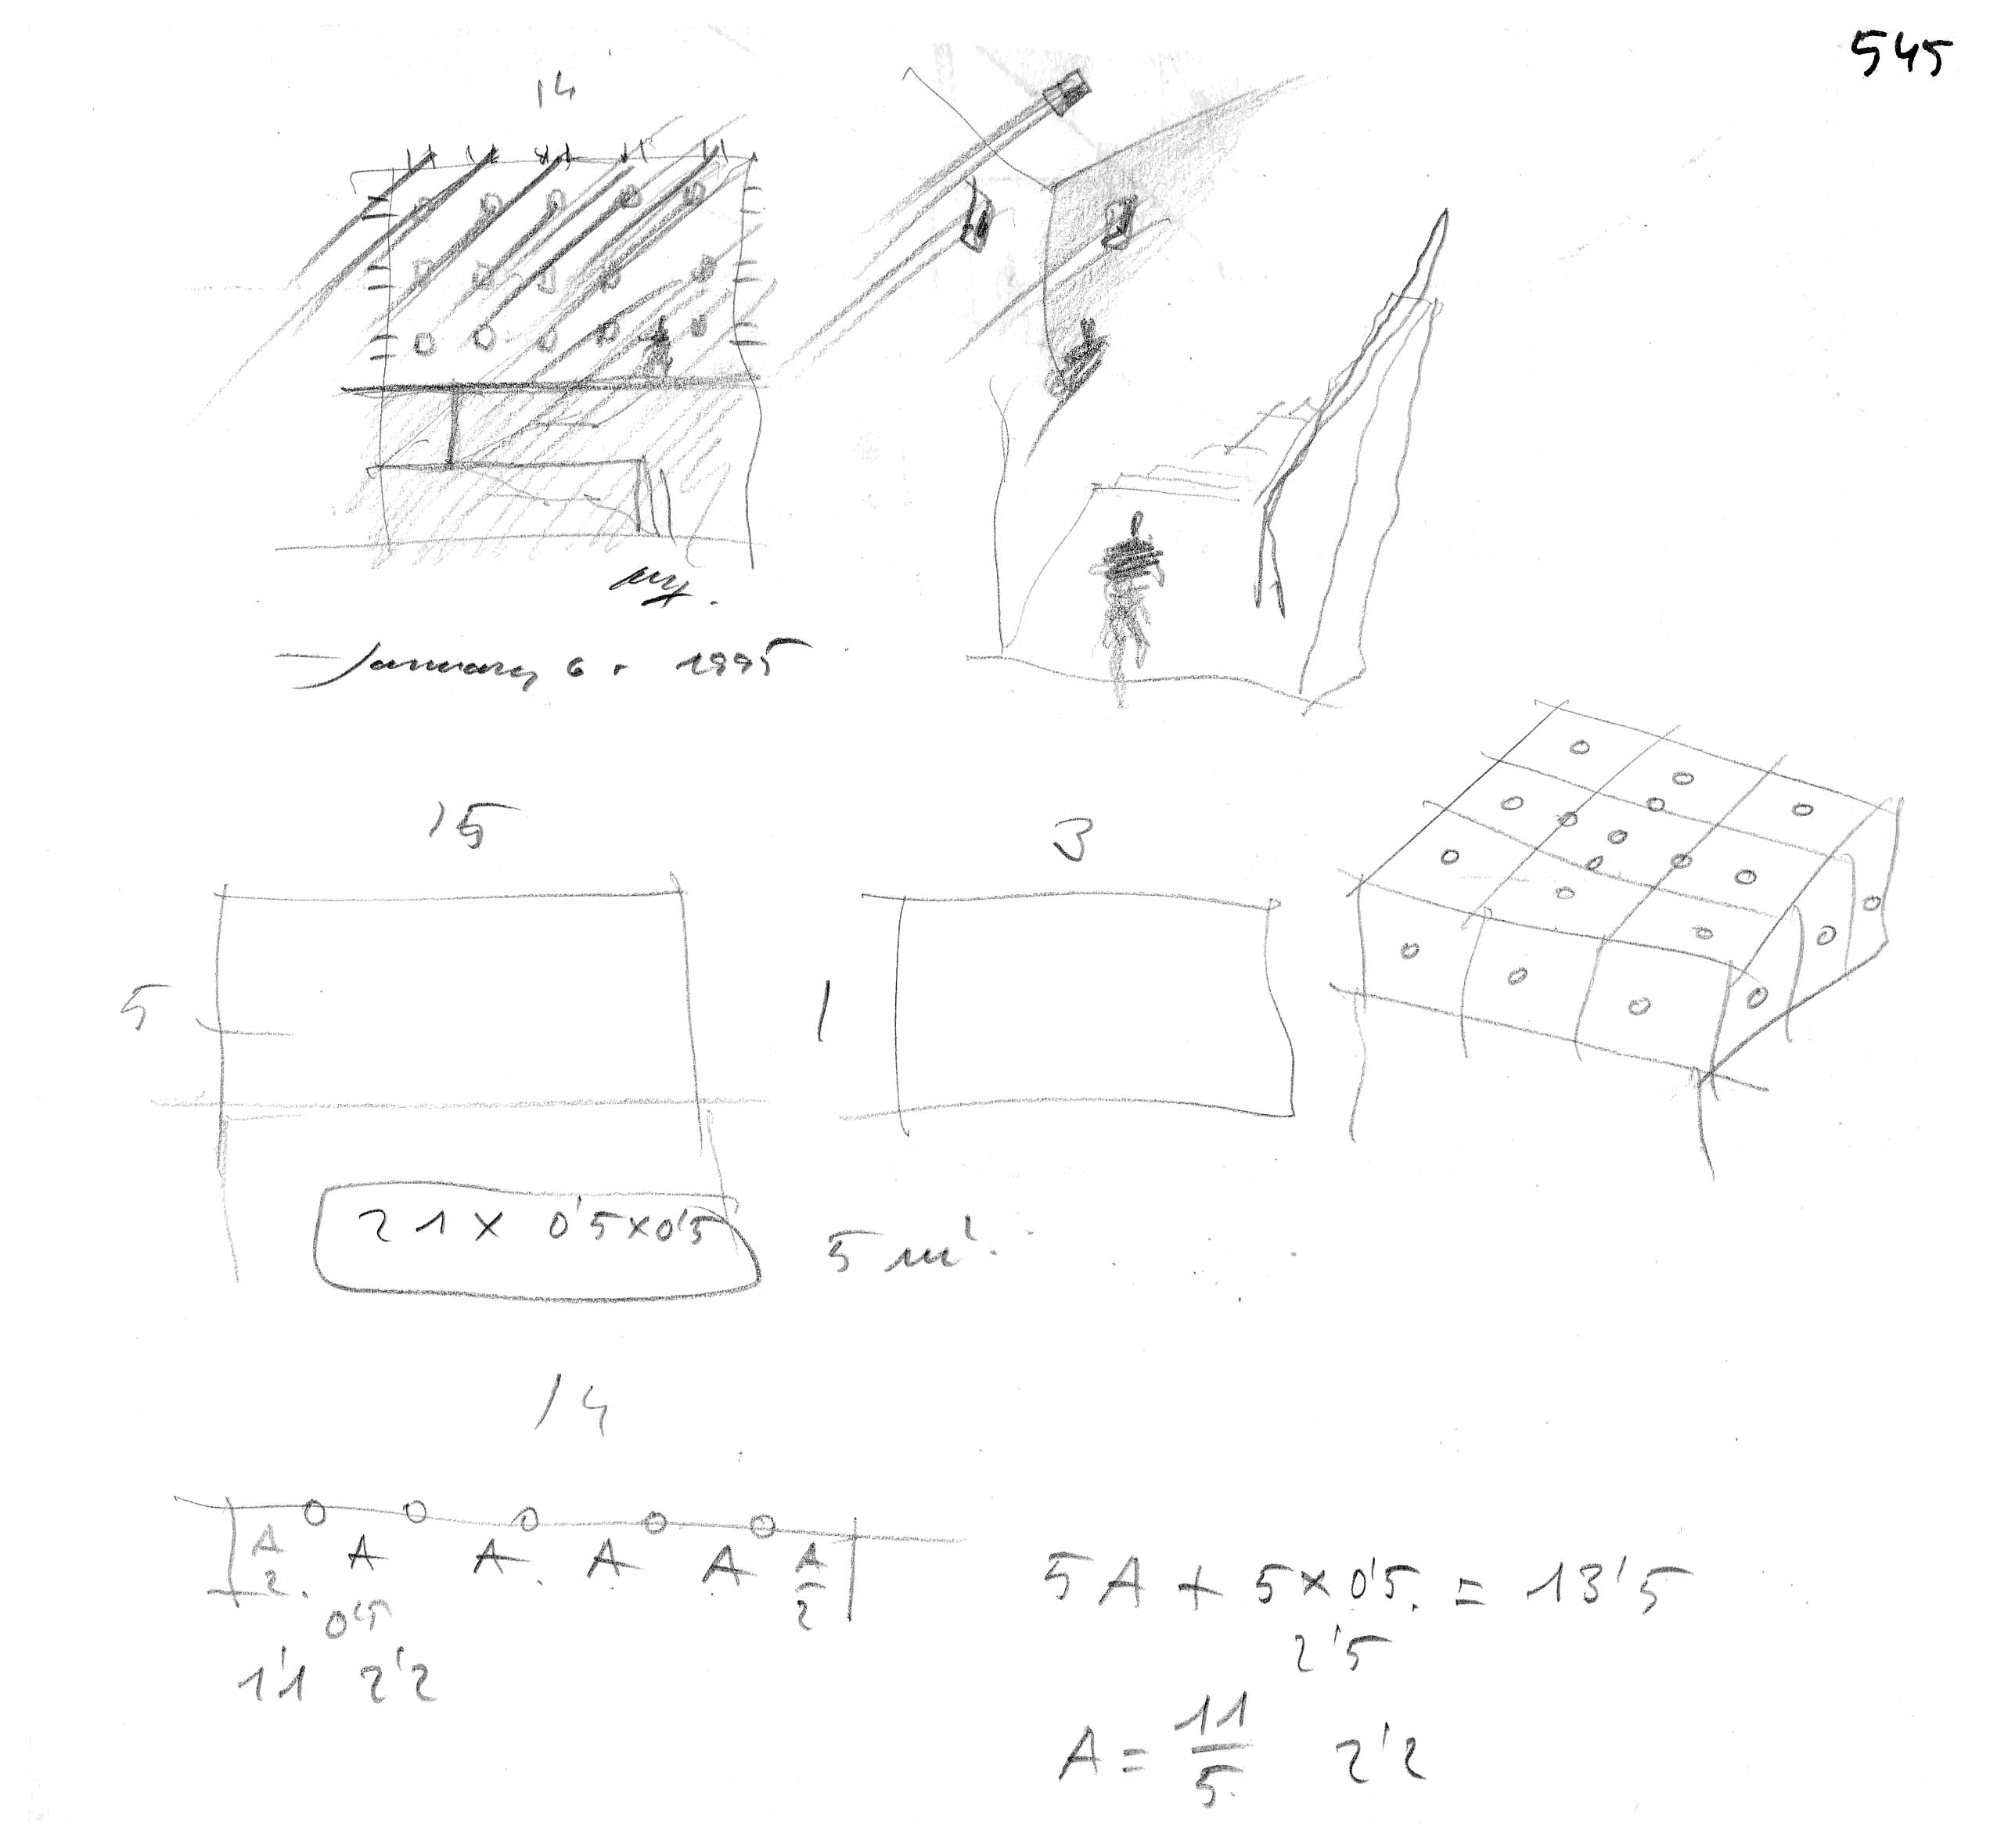 545
14
January 6. 1995
15
3
5
1
21 x 0'5x0'5
5 m².
14
A/2 A A A A A/2
0'5
1'1 2'2
5A + 5x0'5. = 13'5
2'5
A = 11/5 2'2